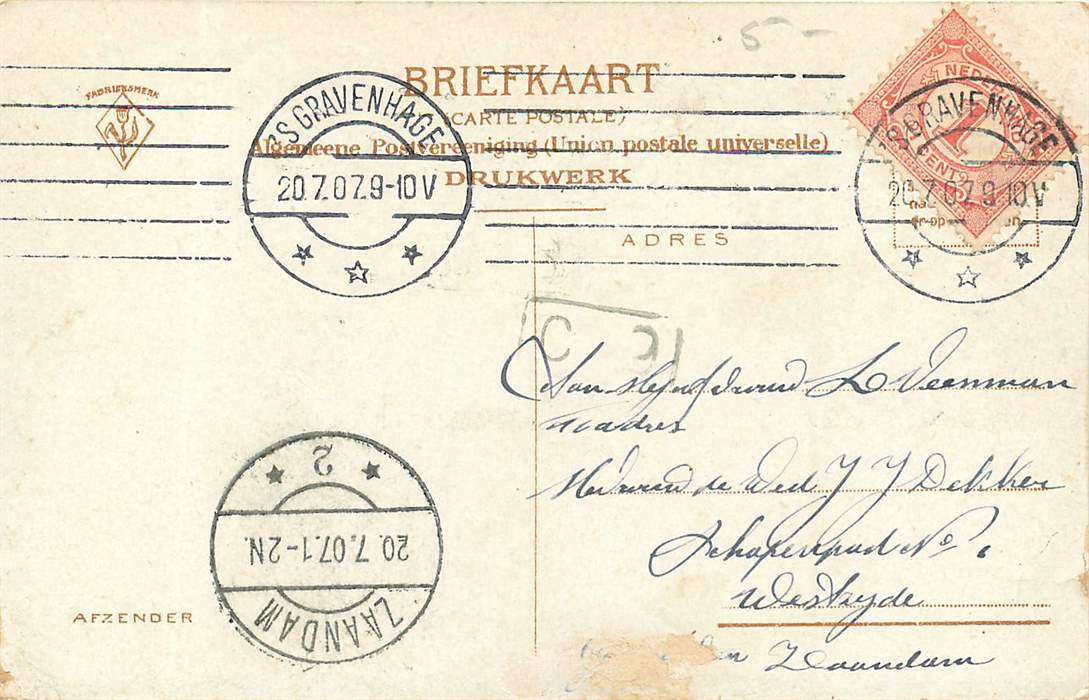 5-
FABRIEKSMERK
BRIEFKAART
(CARTE POSTALE)
Algemeene Postvereeniging (Union postale universelle)
DRUKWERK
ADRES
'S GRAVENHAGE
20.7.07.9-10V
'S GRAVENHAGE
20.7.07.9-10V
NED
CENT
C
Aan L Veenman
adres
de Wed J J Dekker
Schapenpad No
Westzyde
Zaandam
2
20.7.07.1-2N.
ZAANDAM
AFZENDER